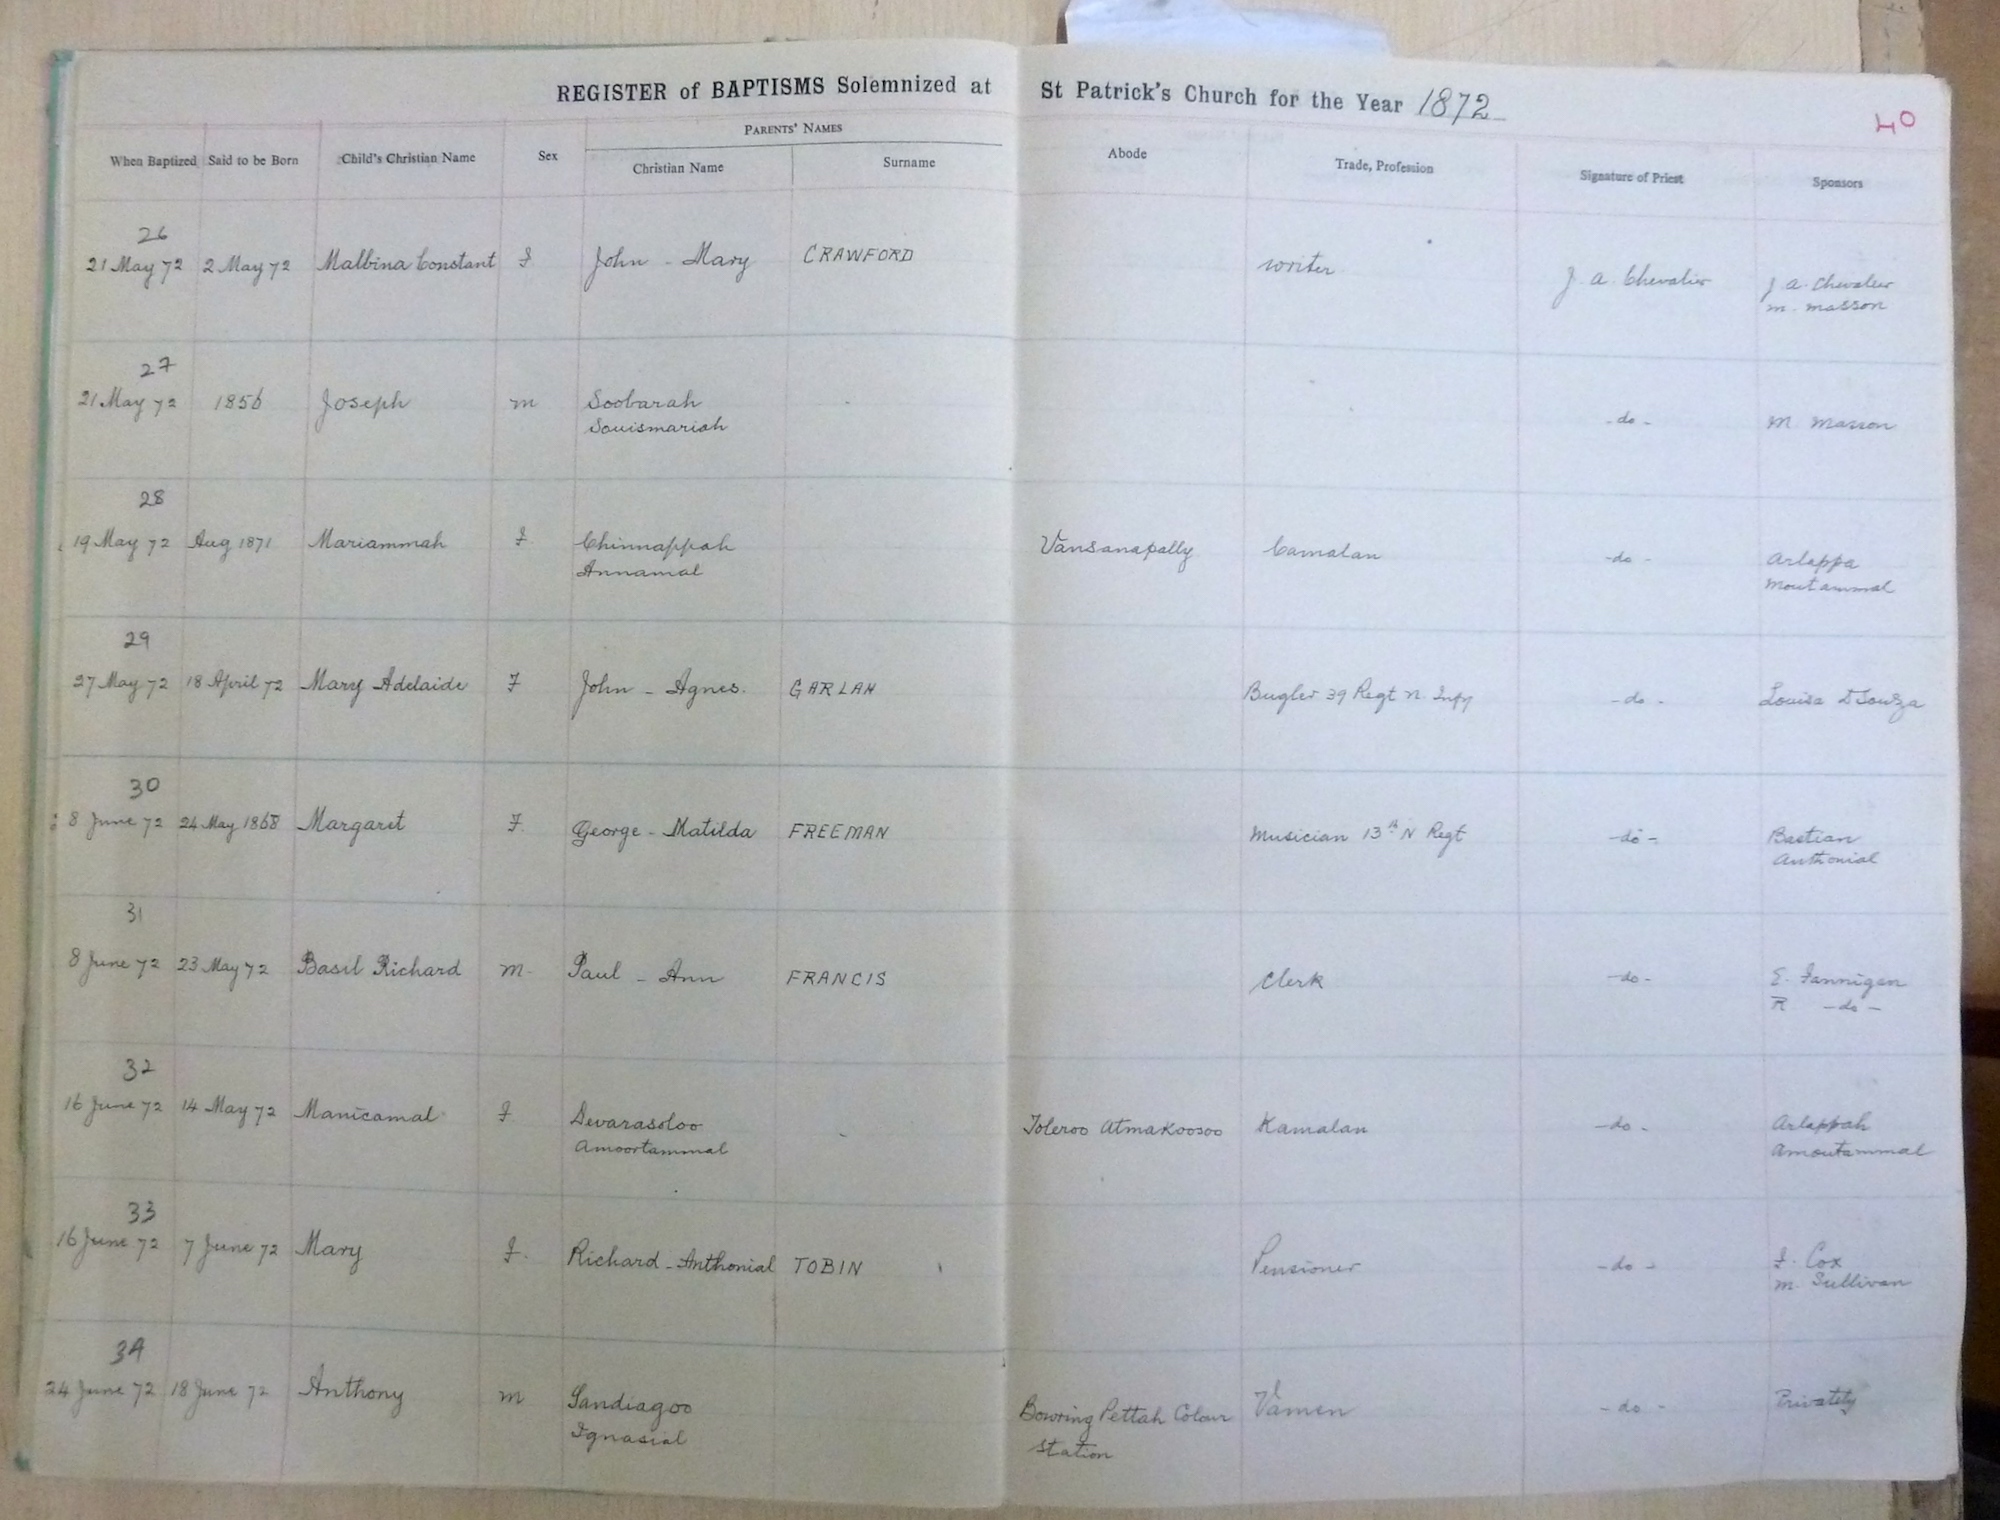 REGISTER of BAPTISMS Solemnized at St Patrick's Church for the Year 1872
40
When Baptized Said to be Born Child's Christian Name Sex PARENTS' NAMES Abode Trade, Profession Signature of Priest Sponsors
Christian Name Surname
26
21 May 72 2 May 72 Malbina Constant F John - Mary CRAWFORD writer J. A. Chevalier J A. Chevalier
M. Masson
27
21 May 72 1856 Joseph m Soobarah - do - M Masson
Souismariah
28
19 May 72 Aug 1871 Mariammah F. Chinnappah Vansanapally Camalan - do - Arlappa
Annamal Moutammal
29
27 May 72 18 April 72 Mary Adelaide F John - Agnes. GARLAN Bugler 39 Regt N. Infy - do - Louisa D'Souza
30
8 June 72 24 May 1868 Margaret F. George - Matilda FREEMAN Musician 13th N Regt - do - Bastian
Anthonial
31
8 June 72 23 May 72 Basil Richard m. Paul - Ann FRANCIS Clerk - do - E. Fannigan
R - do -
32
16 June 72 14 May 72 Manicamal F Devarasoloo Toleroo Atmakoosoo Kamalan - do - Arlappah
Amoortammal Amoutammal
33
16 June 72 7 June 72 Mary F. Richard - Anthonial TOBIN Pensioner - do - F. Cox
M. Sullivan
34
24 June 72 18 June 72 Anthony m Sandiagoo Bowring Pettah Colour Vamen - do - Privately
Ignasial Station